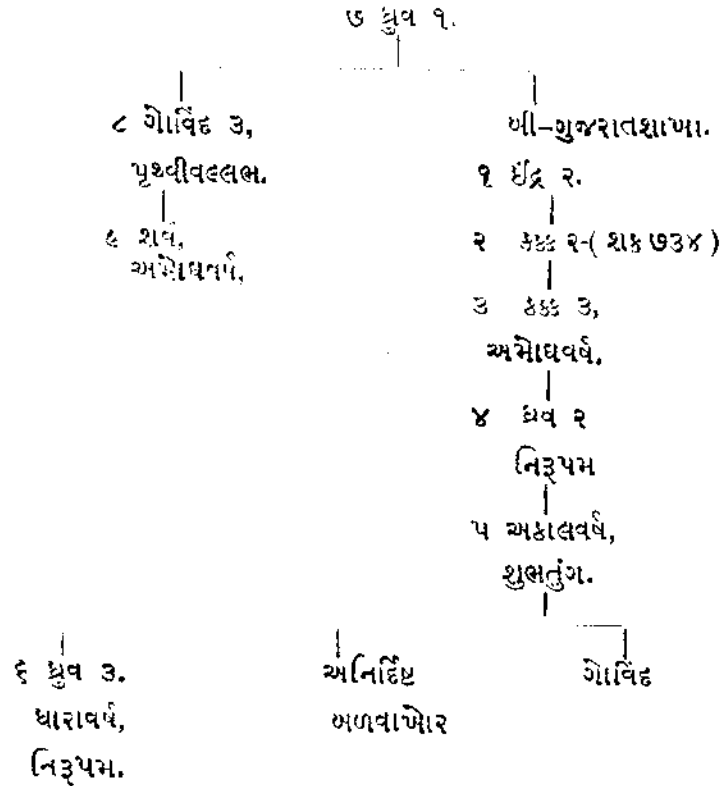 ૭ ધ્રુવ ૧.
૮ ગોવિંદ ૩,
પૃથ્વીવલ્લભ.
૯ શર્વ,
અમોઘવર્ષ,
બી-ગુજરાતશાખા.
૧ ઈંદ્ર ૨.
૨ કક્ક ૨-( શક ૭૩૪ )
૩ કક્ક ૩,
અમોઘવર્ષ.
૪ ધ્રવ ૨
નિરૂપમ
૫ અકાલવર્ષ,
શુભતુંગ.
૬ ધ્રુવ ૩.
ધારાવર્ષ,
નિરૂપમ.
અનિર્દિષ્ટ
બળવાખોર
ગોવિંદ